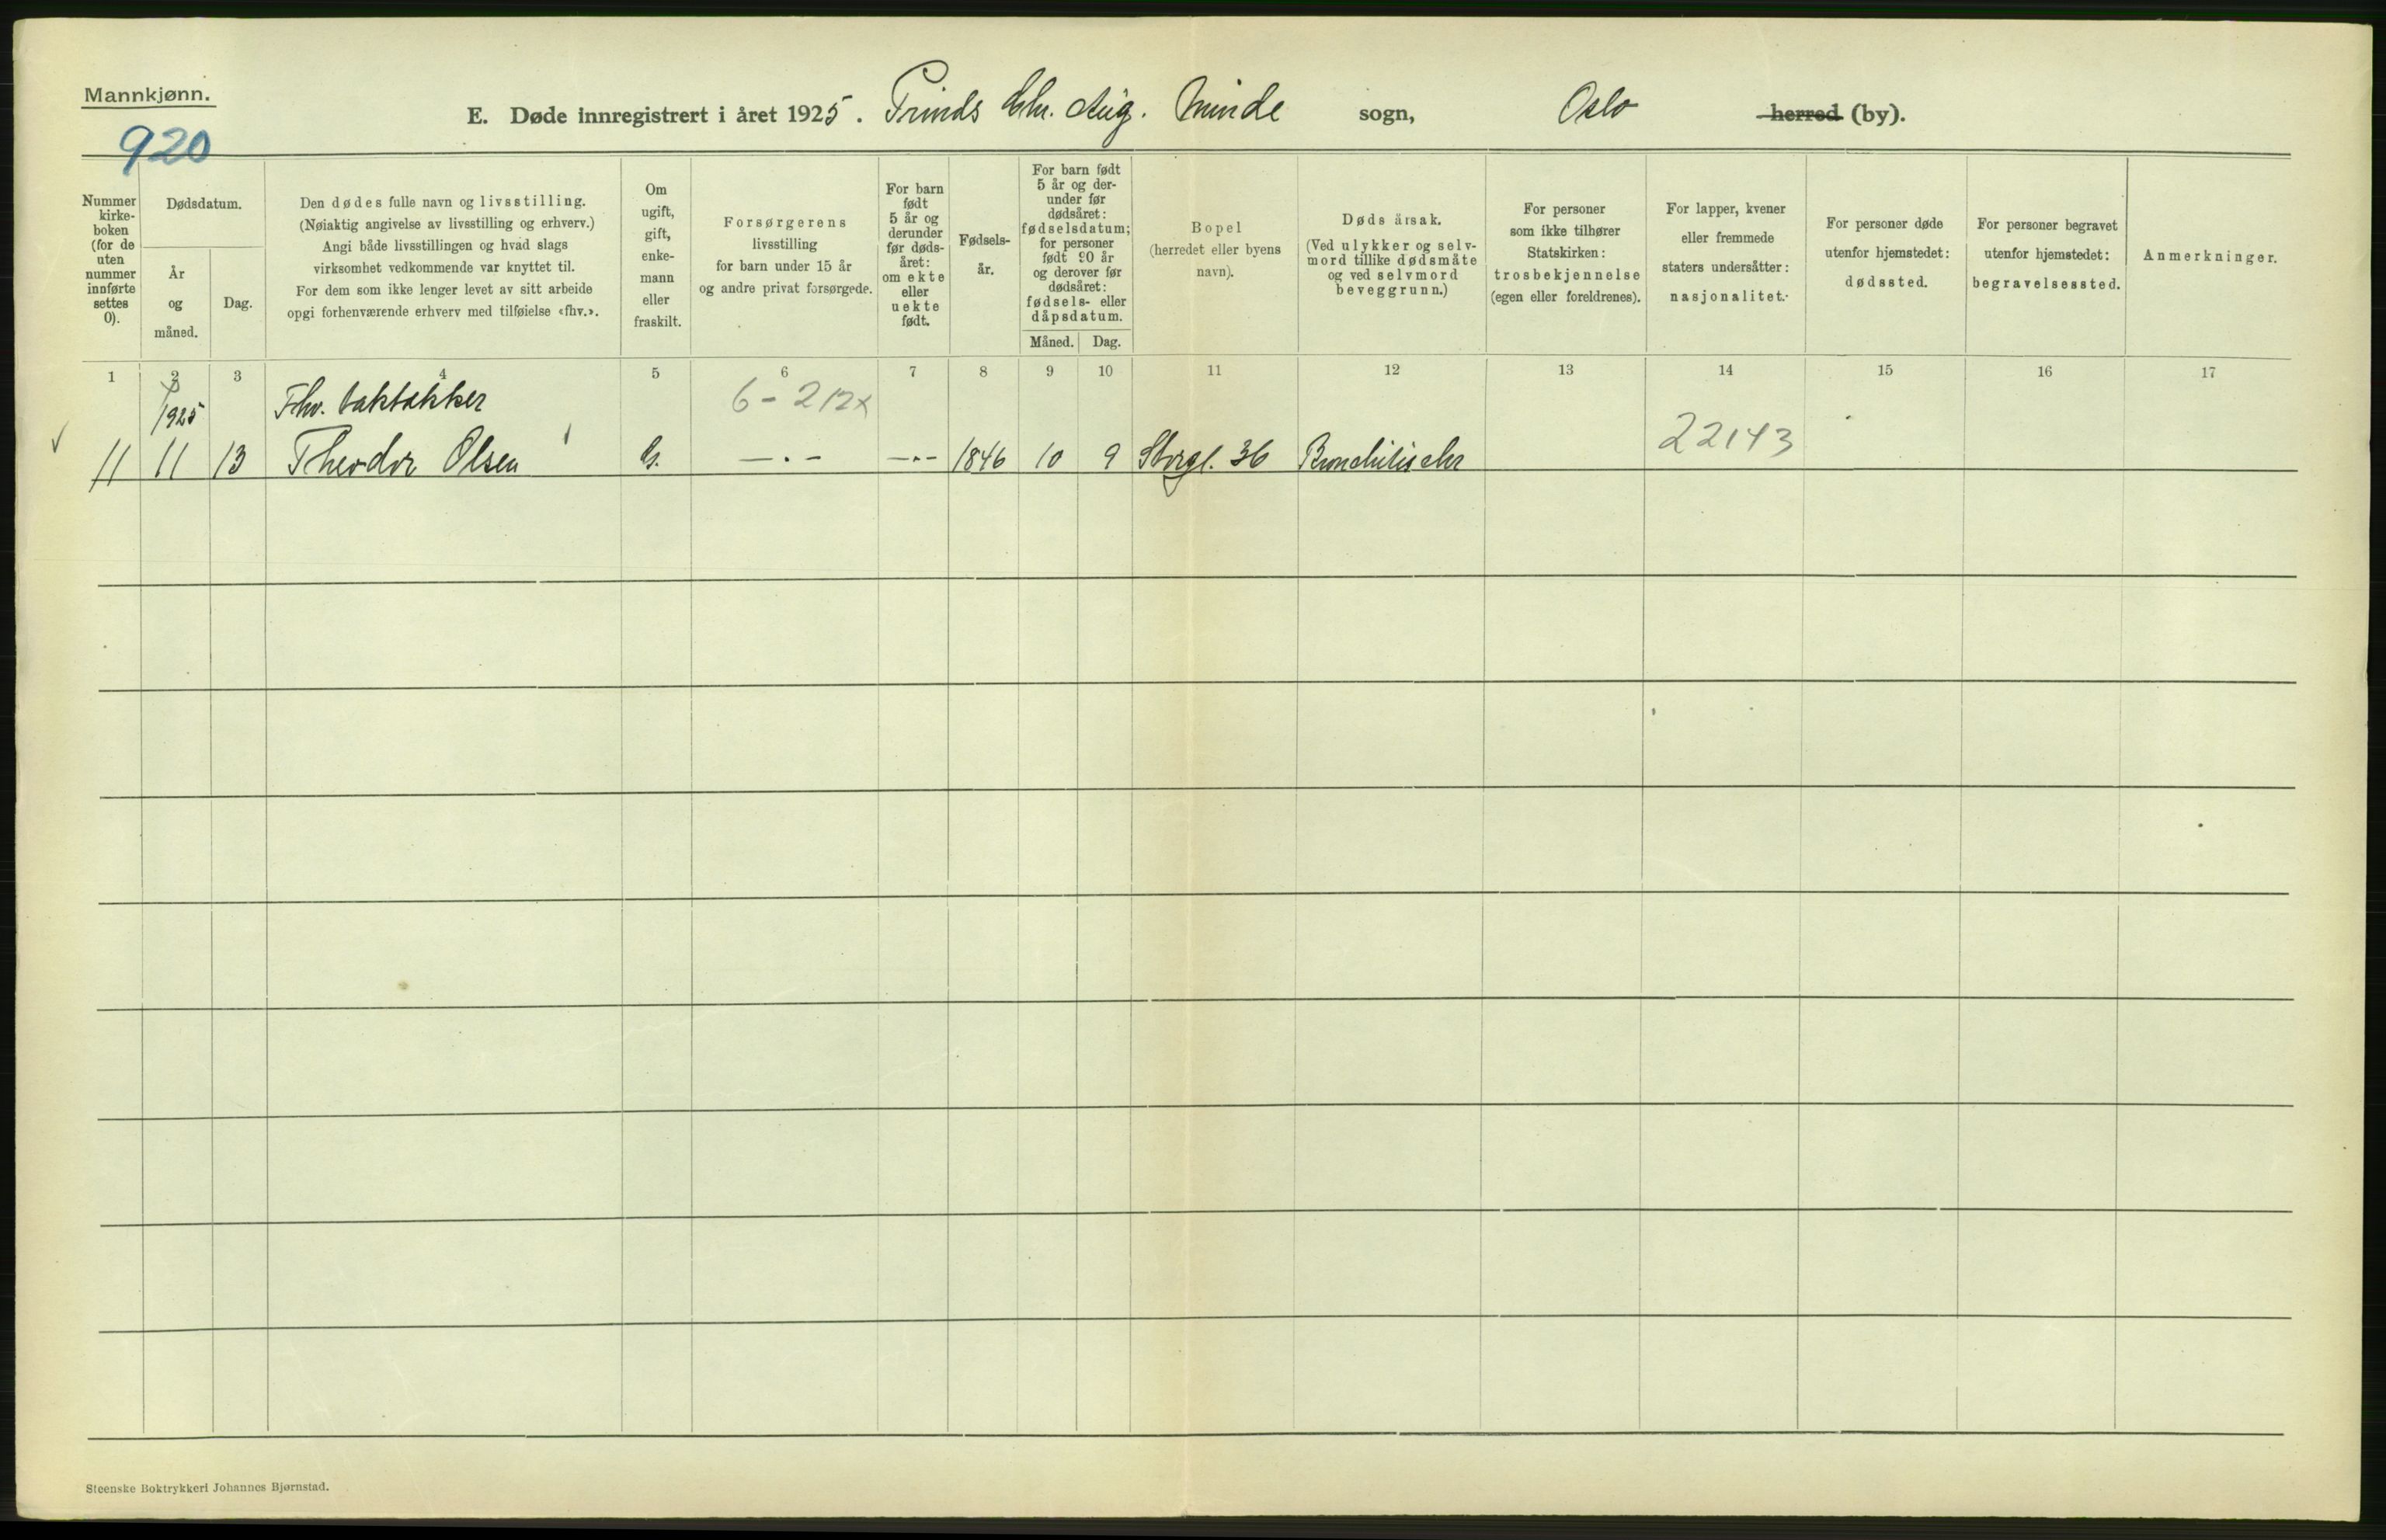 Mannkjønn.
920
E. Døde innregistrert i året 1925. Prinds Chr. Aug. Minde sogn, Oslo herred (by).
Nummer kirke-boken (for de uten nummer innførte settes 0).
Dødsdatum.
År og måned.
Dag.
Den dødes fulle navn og livsstilling.
(Nøiaktig angivelse av livsstilling og erhverv.)
Angi både livsstillingen og hvad slags
virksomhet vedkommende var knyttet til.
For dem som ikke lenger levet av sitt arbeide
opgi forhenværende erhverv med tilføielse «fhv.».
Om ugift, gift, enke-mann eller fraskilt.
Forsørgerens
livsstilling
for barn under 15 år
og andre privat forsørgede.
For barn født 5 år og derunder før døds-året: om ekte eller uekte født.
Fødsels-år.
For barn født
5 år og der-
under før
dødsåret:
fødselsdatum;
for personer
født 90 år
og derover før
dødsåret:
fødsels- eller
dåpsdatum.
Måned. Dag.
Bopel
(herredet eller byens
navn).
Døds årsak.
(Ved ulykker og selv-
mord tillike dødsmåte
og ved selvmord
beveggrunn.)
For personer
som ikke tilhører
Statskirken:
trosbekjennelse
(egen eller foreldrenes).
For lapper, kvener
eller fremmede
staters undersåtter:
nasjonalitet.
For personer døde
utenfor hjemstedet:
dødssted.
For personer begravet
utenfor hjemstedet:
begravelsessted.
Anmerkninger.
1 2 3 4 5 6 7 8 9 10 11 12 13 14 15 16 17
1925 Fhv. taktekker 6-212x
22143
11 11 13 Theodor Olsen G. —.— —.— 1846 10 9 Storgt. 36 Bronchitis chr
Steenske Boktrykkeri Johannes Bjørnstad.